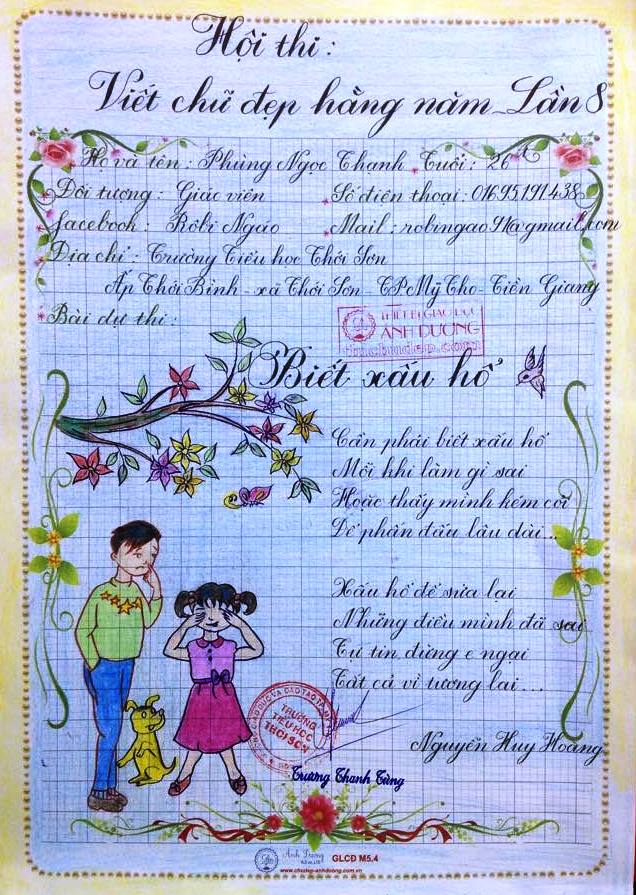 Hội thi:
Viết chữ đẹp hằng năm_Lần 8
Họ và tên: Phùng Ngọc Thanh Tuổi: 26
Đối tượng: Giáo viên Số điện thoại: 01695.191.438
facebook: Rôbi Ngáo Mail: robingao91@gmail.com
Địa chỉ: Trường Tiểu học Thới Sơn
Ấp Thới Bình - xã Thới Sơn - TP Mỹ Tho - Tiền Giang
Bài dự thi:
THIẾT BỊ GIÁO DỤC
ÁNH DƯƠNG
Biết xấu hổ
Cần phải biết xấu hổ
Mỗi khi làm gì sai
Hoặc thấy mình kém cỏi
Để phấn đấu lâu dài...
Xấu hổ để sửa lại
Những điều mình đã sai
Tự tin đừng e ngại
Tất cả vì tương lai...
TRƯỜNG
TIỂU HỌC
THỚI SƠN
Nguyễn Huy Hoàng
Trương Thanh Tùng
Ánh Dương
GLCĐ M5.4
www.chudep-anhduong.com.vn